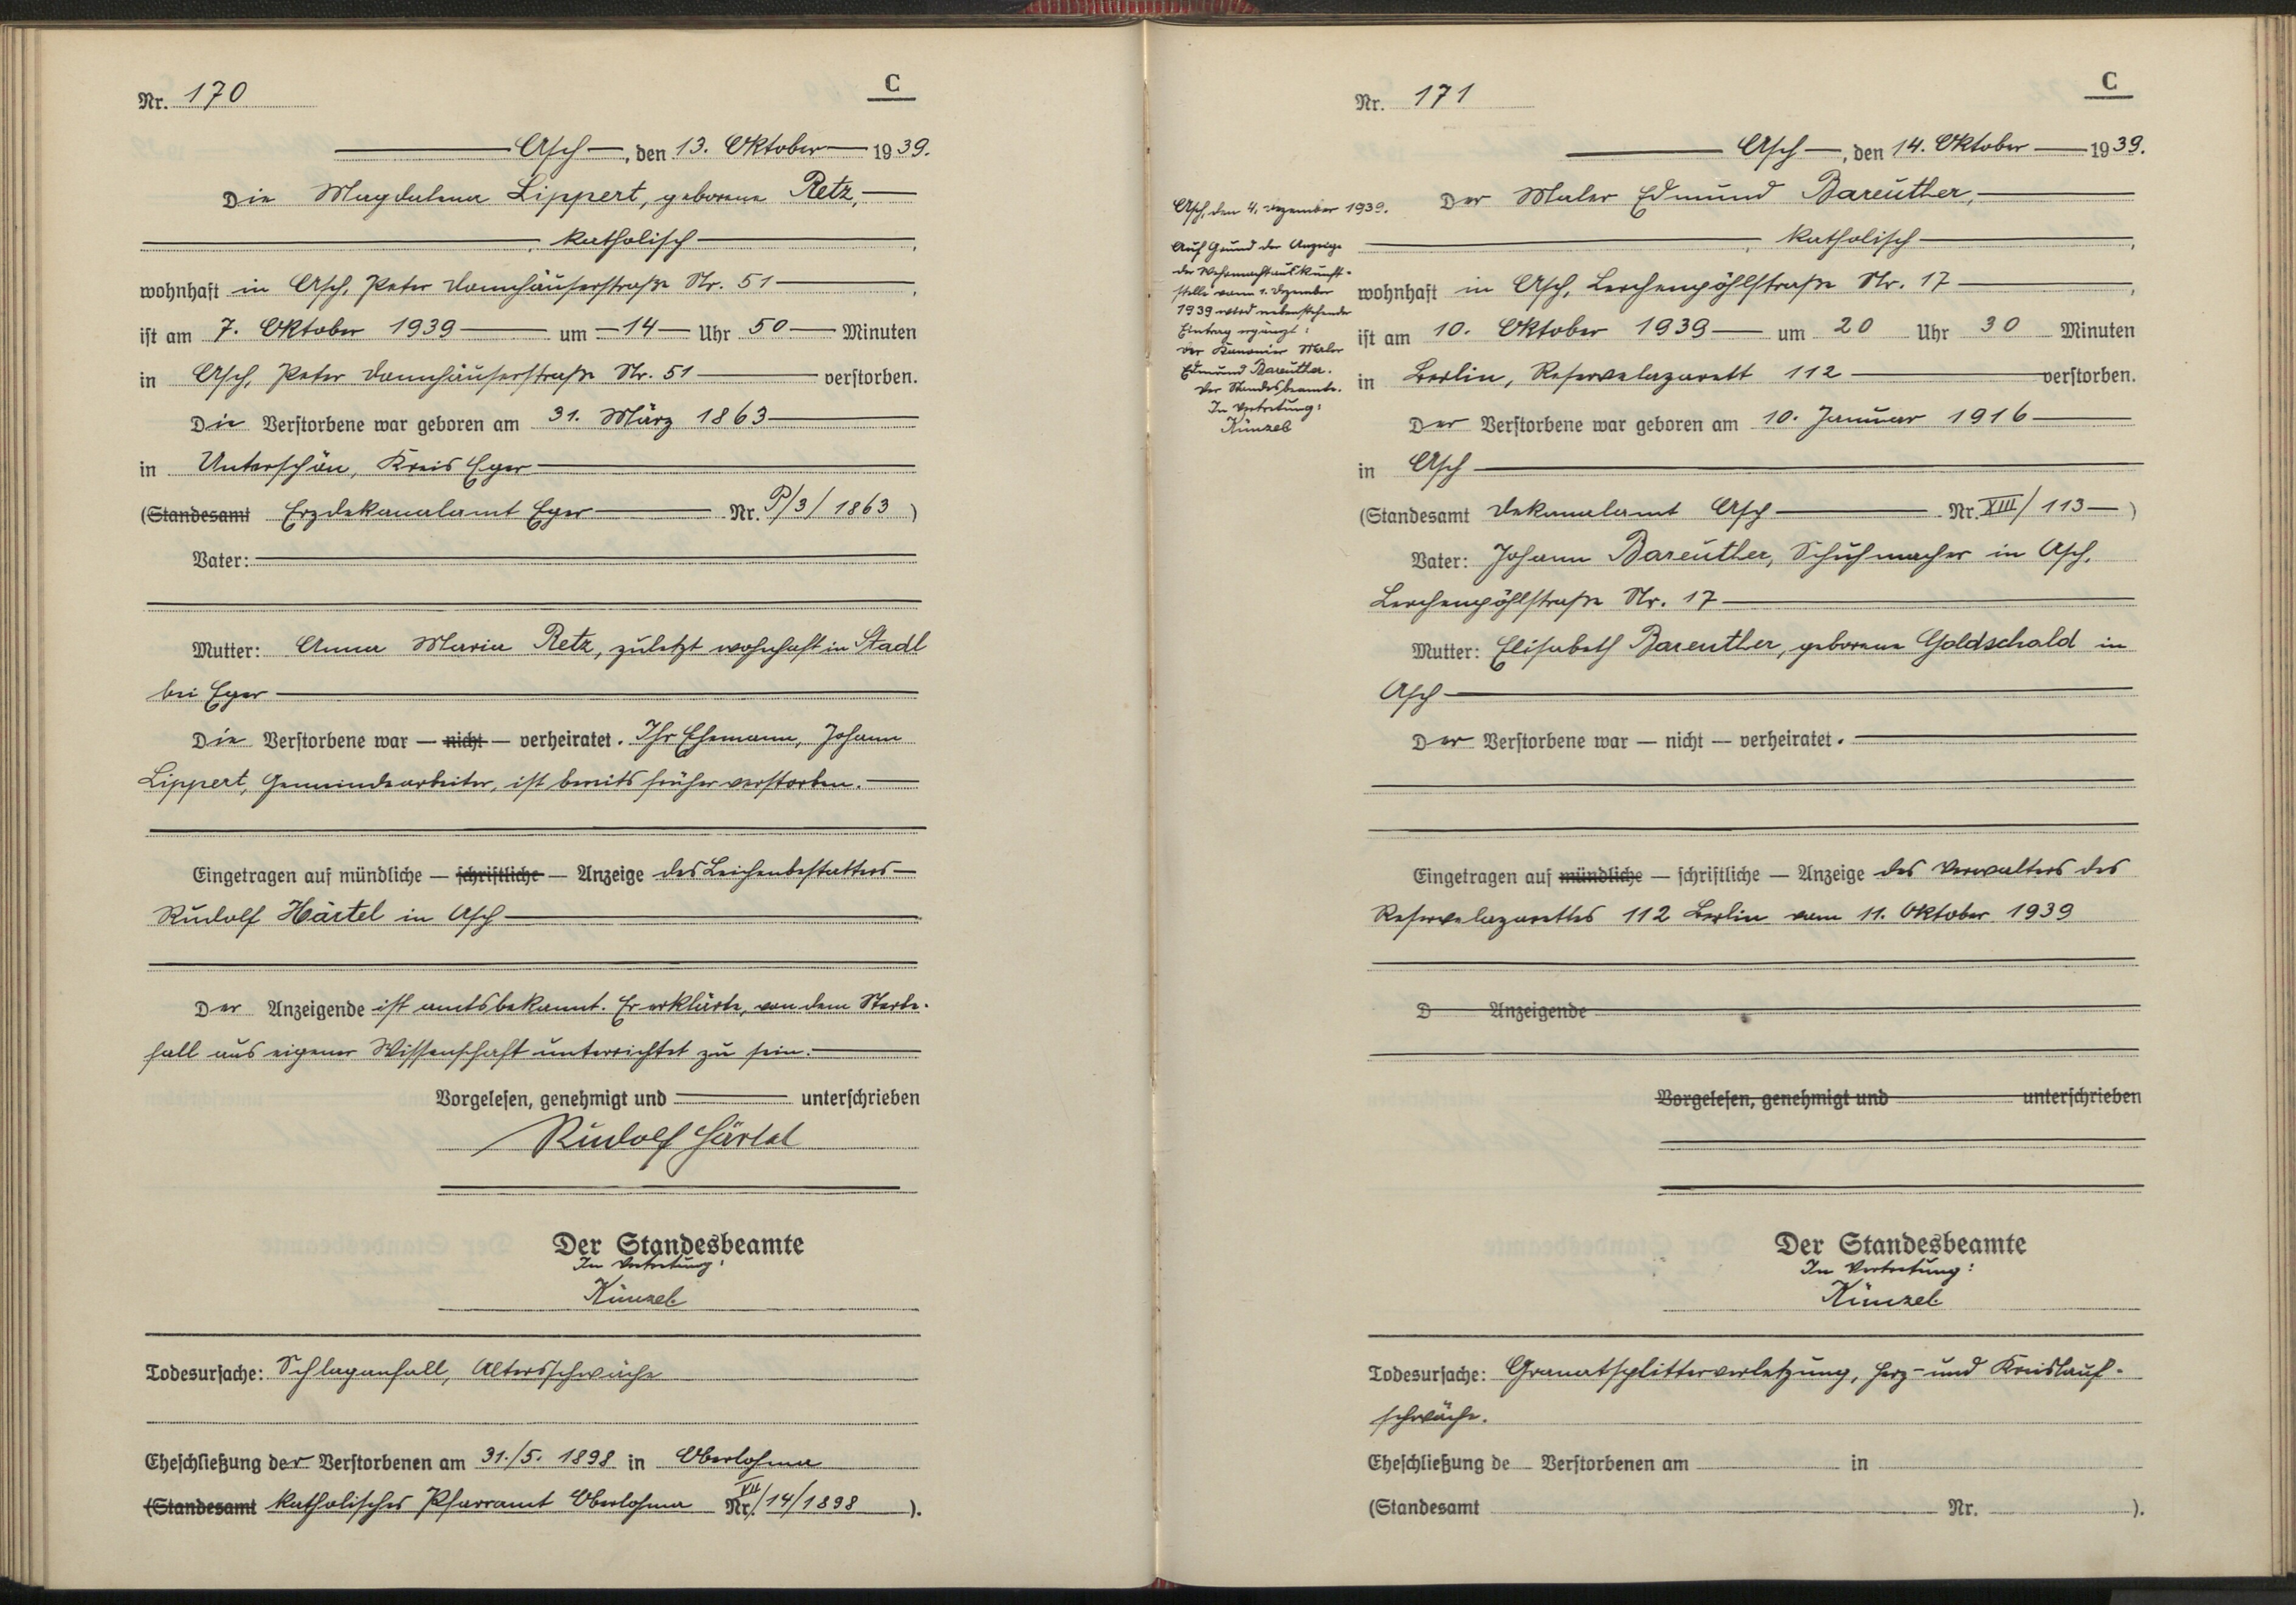 C
Nr. 170
Asch, den 13. Oktober 1939.
Die Magdalena Lippert, geborene Retz,
, katholisch,
wohnhaft in Asch, Peter Donnhäuserstraße Nr. 51,
ist am 7. Oktober 1939 um 14 Uhr 50 Minuten
in Asch, Peter Donnhäuserstraße Nr. 51 verstorben.
Die Verstorbene war geboren am 31. März 1863
in Unterschön, Kreis Eger
(Standesamt Erzdekanalamt Eger Nr. P/3/1863)
Vater:
Mutter: Anna Maria Retz, zuletzt wohnhaft in Stadl
bei Eger
Die Verstorbene war — nicht — verheiratet. Ihr Ehemann, Johann
Lippert, Gemeindearbeiter, ist bereits früher verstorben.
Eingetragen auf mündliche — schriftliche — Anzeige des Leichenbestatters
Rudolf Härtel in Asch
Der Anzeigende ist amtsbekannt. Er erklärte, von dem Sterbe-
fall aus eigener Wissenschaft unterrichtet zu sein.
Vorgelesen, genehmigt und unterschrieben
Rudolf Härtel
Der Standesbeamte
In Vertretung:
Künzel
Todesursache: Schlaganfall, Altersschwäche
Eheschließung der Verstorbenen am 31./5. 1898 in Oberlohma
(Standesamt katholisches Pfarramt Oberlohma Nr. VII/14/1898).
C
Nr. 171
Asch, den 14. Oktober 1939.
Der Maler Edmund Bareuther,
, katholisch,
wohnhaft in Asch, Lerchenpöhlstraße Nr. 17,
ist am 10. Oktober 1939 um 20 Uhr 30 Minuten
in Berlin, Reservelazarett 112 verstorben.
Der Verstorbene war geboren am 10. Januar 1916
in Asch
(Standesamt Dekanalamt Asch Nr. XIII/113)
Vater: Johann Bareuther, Schuhmacher in Asch,
Lerchenpöhlstraße Nr. 17
Mutter: Elisabeth Bareuther, geborene Goldschald in
Asch
Der Verstorbene war — nicht — verheiratet.
Eingetragen auf mündliche — schriftliche — Anzeige des Verwalters des
Reservelazarettes 112 Berlin vom 11. Oktober 1939
D Anzeigende
Vorgelesen, genehmigt und unterschrieben
Der Standesbeamte
In Vertretung:
Künzel.
Todesursache: Granatsplitterverletzung, Herz- und Kreislauf-
schwäche.
Eheschließung de Verstorbenen am in
(Standesamt Nr. ).
Asch, den 4. Dezember 1939.
Auf Grund der Anzeige
der Wehrmachtauskunft-
stelle vom 1. Dezember
1939 wird nebenstehender
Eintrag ergänzt:
Der Kanonier Maler
Edmund Bareuther.
Der Standesbeamte.
In Vertretung:
Künzel